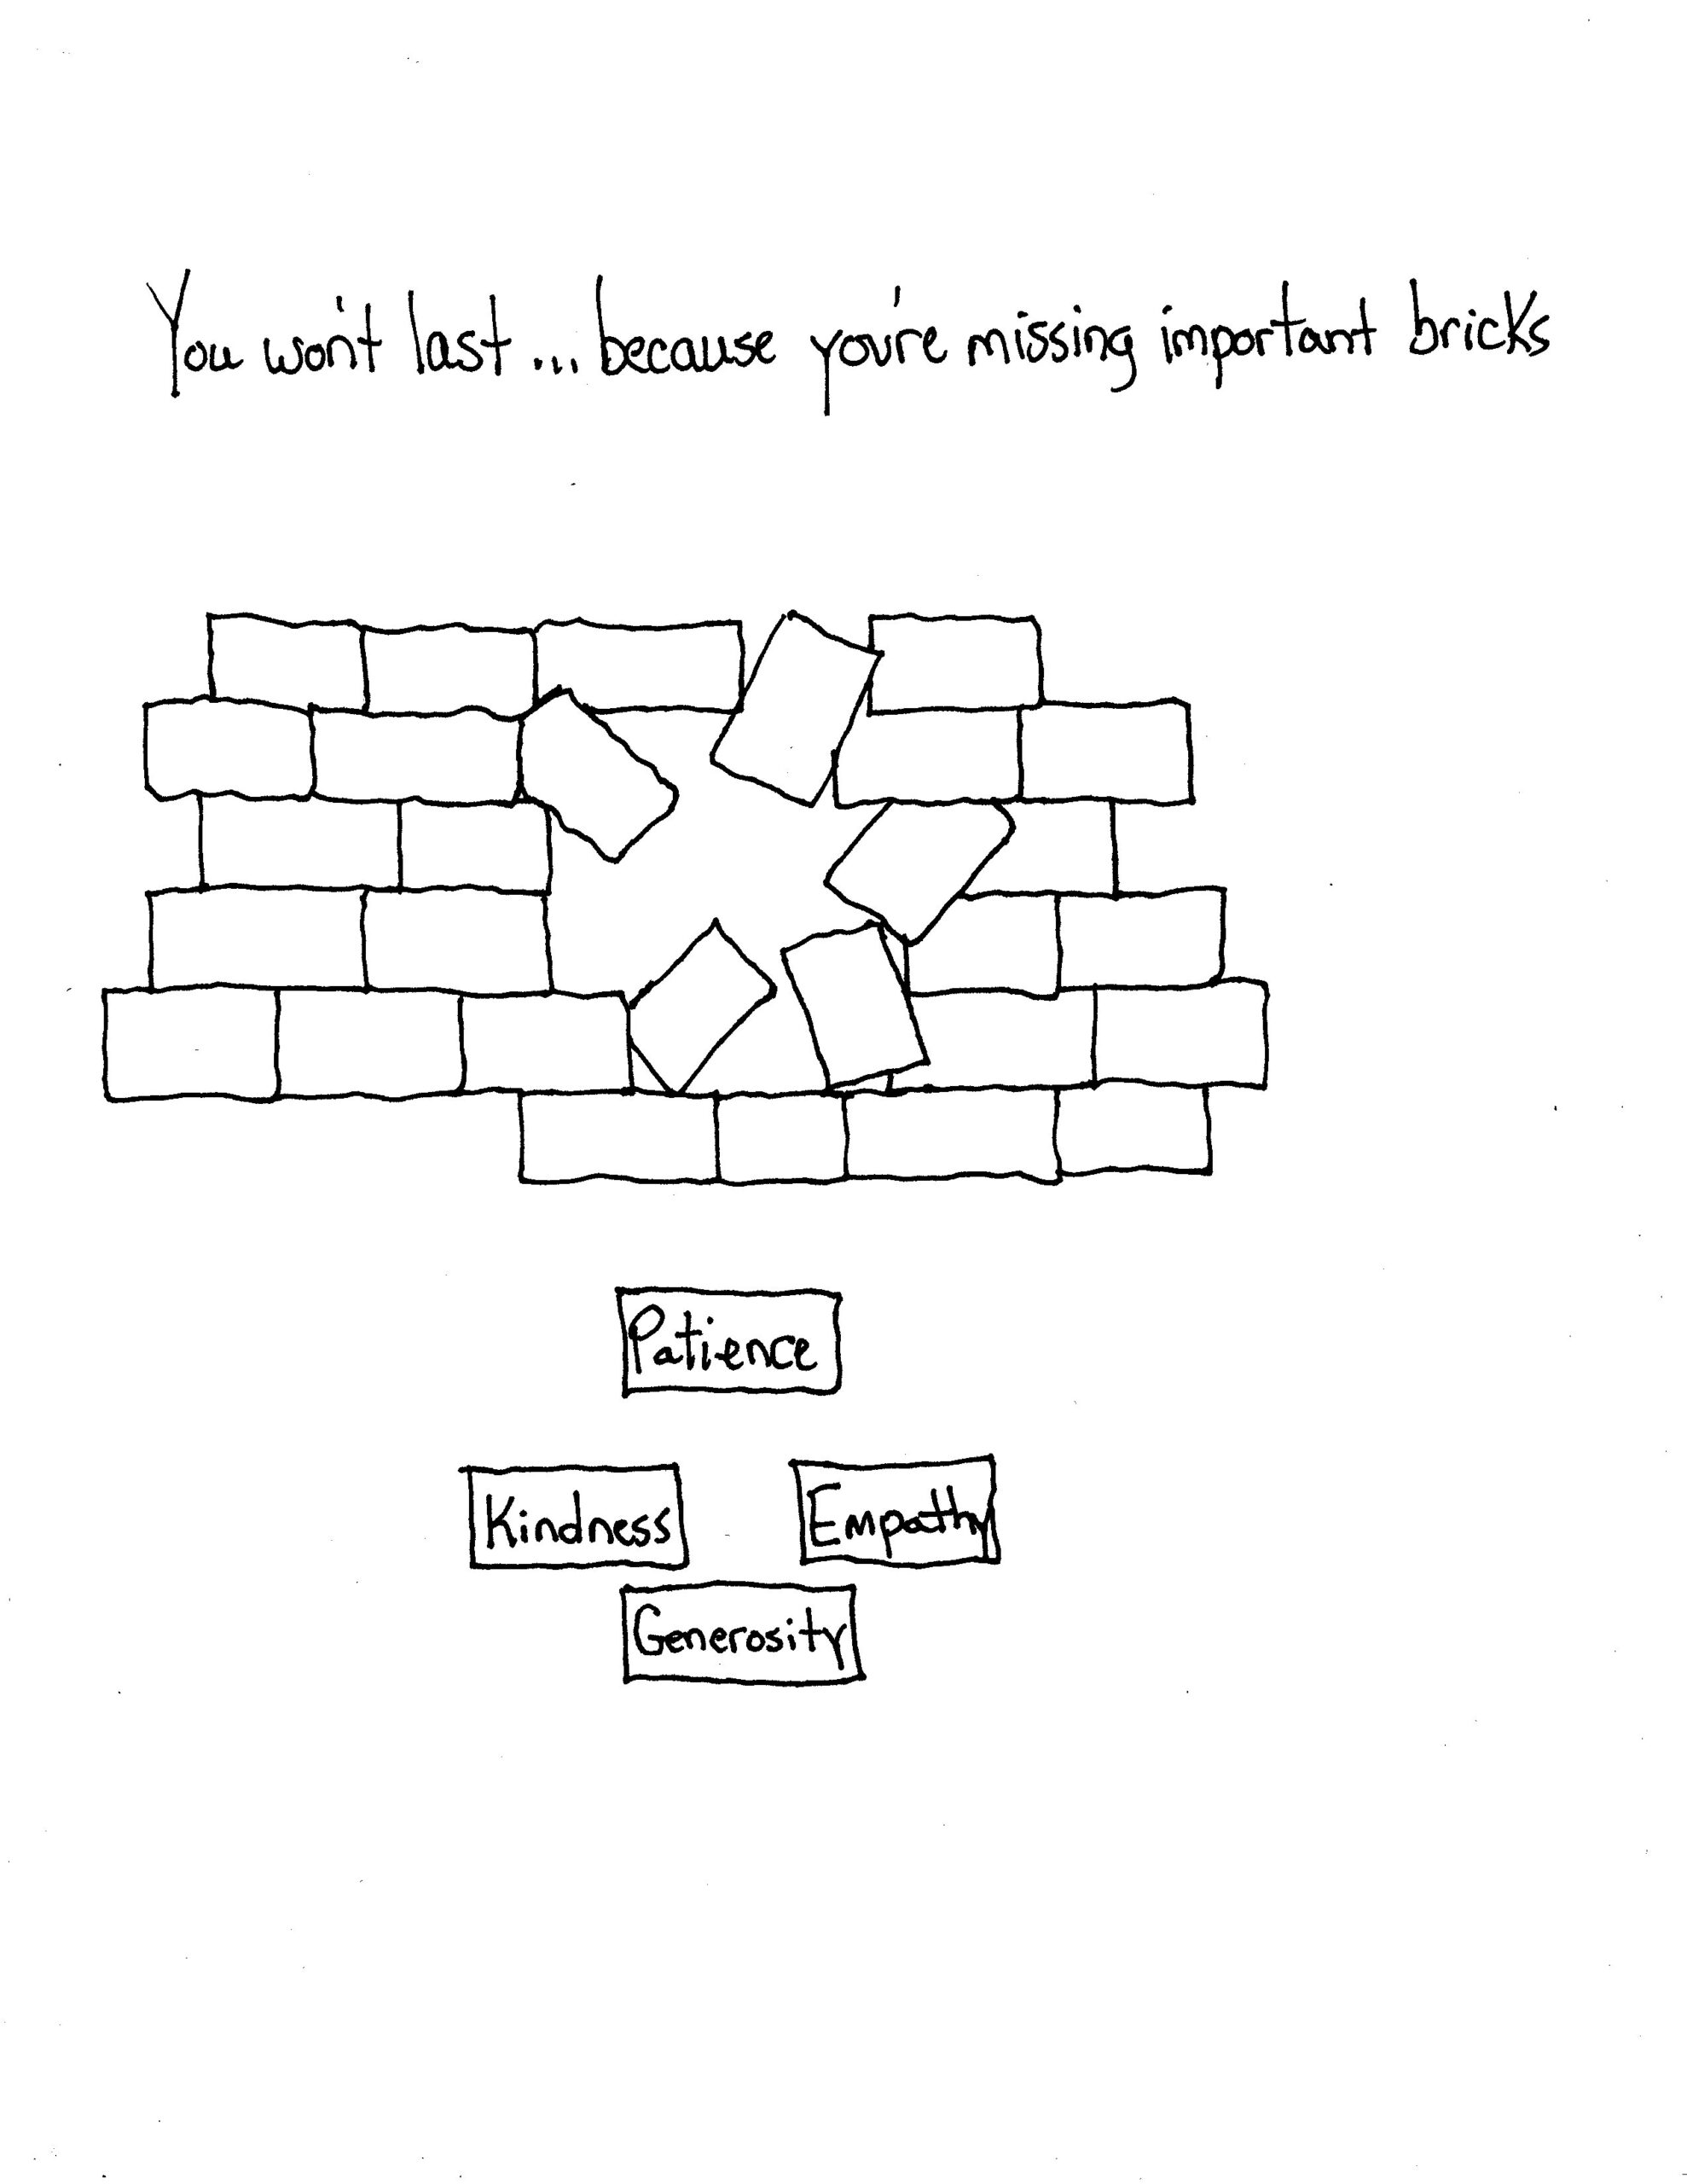 You won't last... because you're missing important bricks
Patience
Kindness Empathy
Generosity